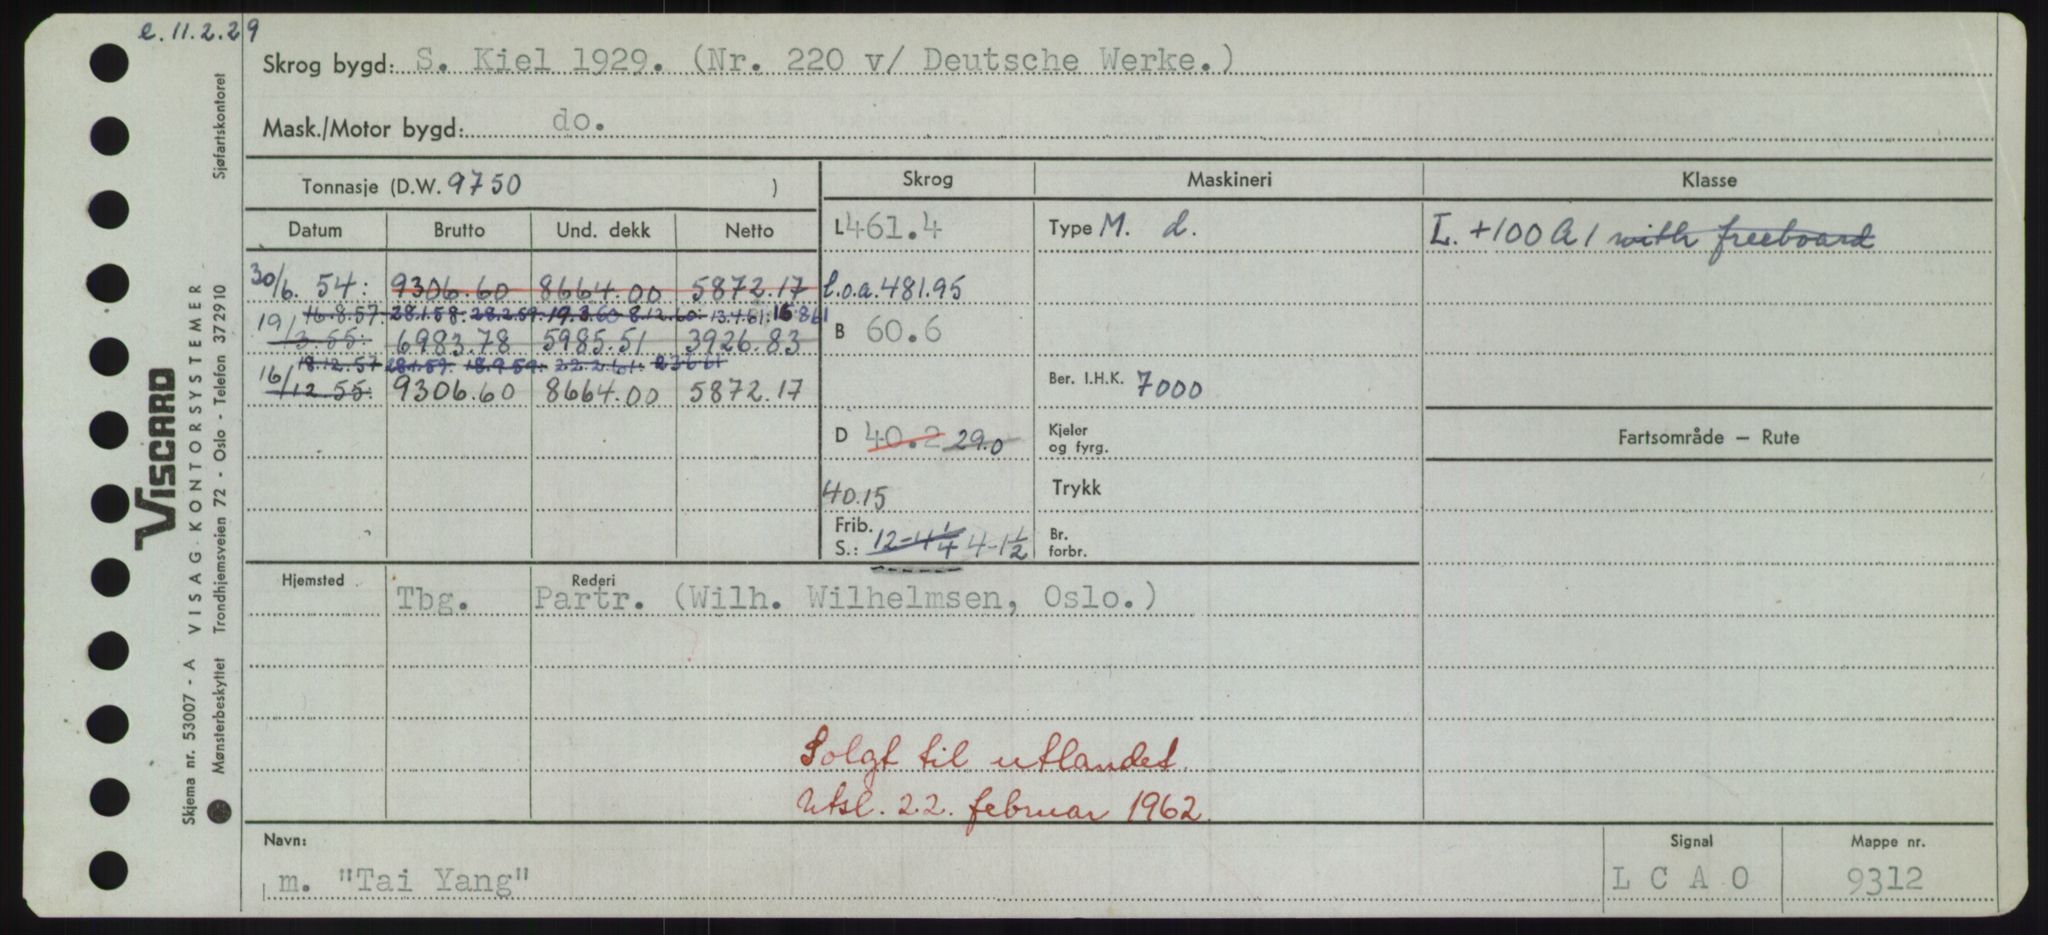 e. 11.2.29
Skrog bygd: S. Kiel 1929. (Nr. 220 v/ Deutsche Werke.)
Mask./Motor bygd: do.
Tonnasje (D.W. 9750 )
Skrog Maskineri Klasse
Datum Brutto Und. dekk Netto
L 461.4 Type M. d. L. +100 A 1 with freeboard
30/6. 54: 9306.60 8664.00 5872.17 l.o.a. 481.95
16.8.57. 28.1.58. 28.2.59. 19.3.60 8.12.60. 13.4.61. 16.8.61
19/3 55: 6983.78 5985.51 3926.83 B 60.6
18.12.57 28.1.59. 18.9.59. 22.2.61.
16/12 55: 9306.60 8664.00 5872.17 Ber. I.H.K. 7000
D 40.2 29.0 Kjeler og fyrg. Fartsområde – Rute
40.15 Trykk
Frib. S.: 12-4 1/4 4-1 1/2 Br. forbr.
Hjemsted Rederi
Tbg. Partr. (Wilh. Wilhelmsen, Oslo.)
Solgt til utlandet.
Utsl. 22. februar 1962.
Navn: Signal Mappe nr.
m. "Tai Yang" L C A O 9312
VISCARD
Skjema nr. 53007 - A VISAG KONTORSYSTEMER
Mønsterbeskyttet Trondhjemsveien 72 - Oslo - Telefon 372910 Sjøfartskontoret